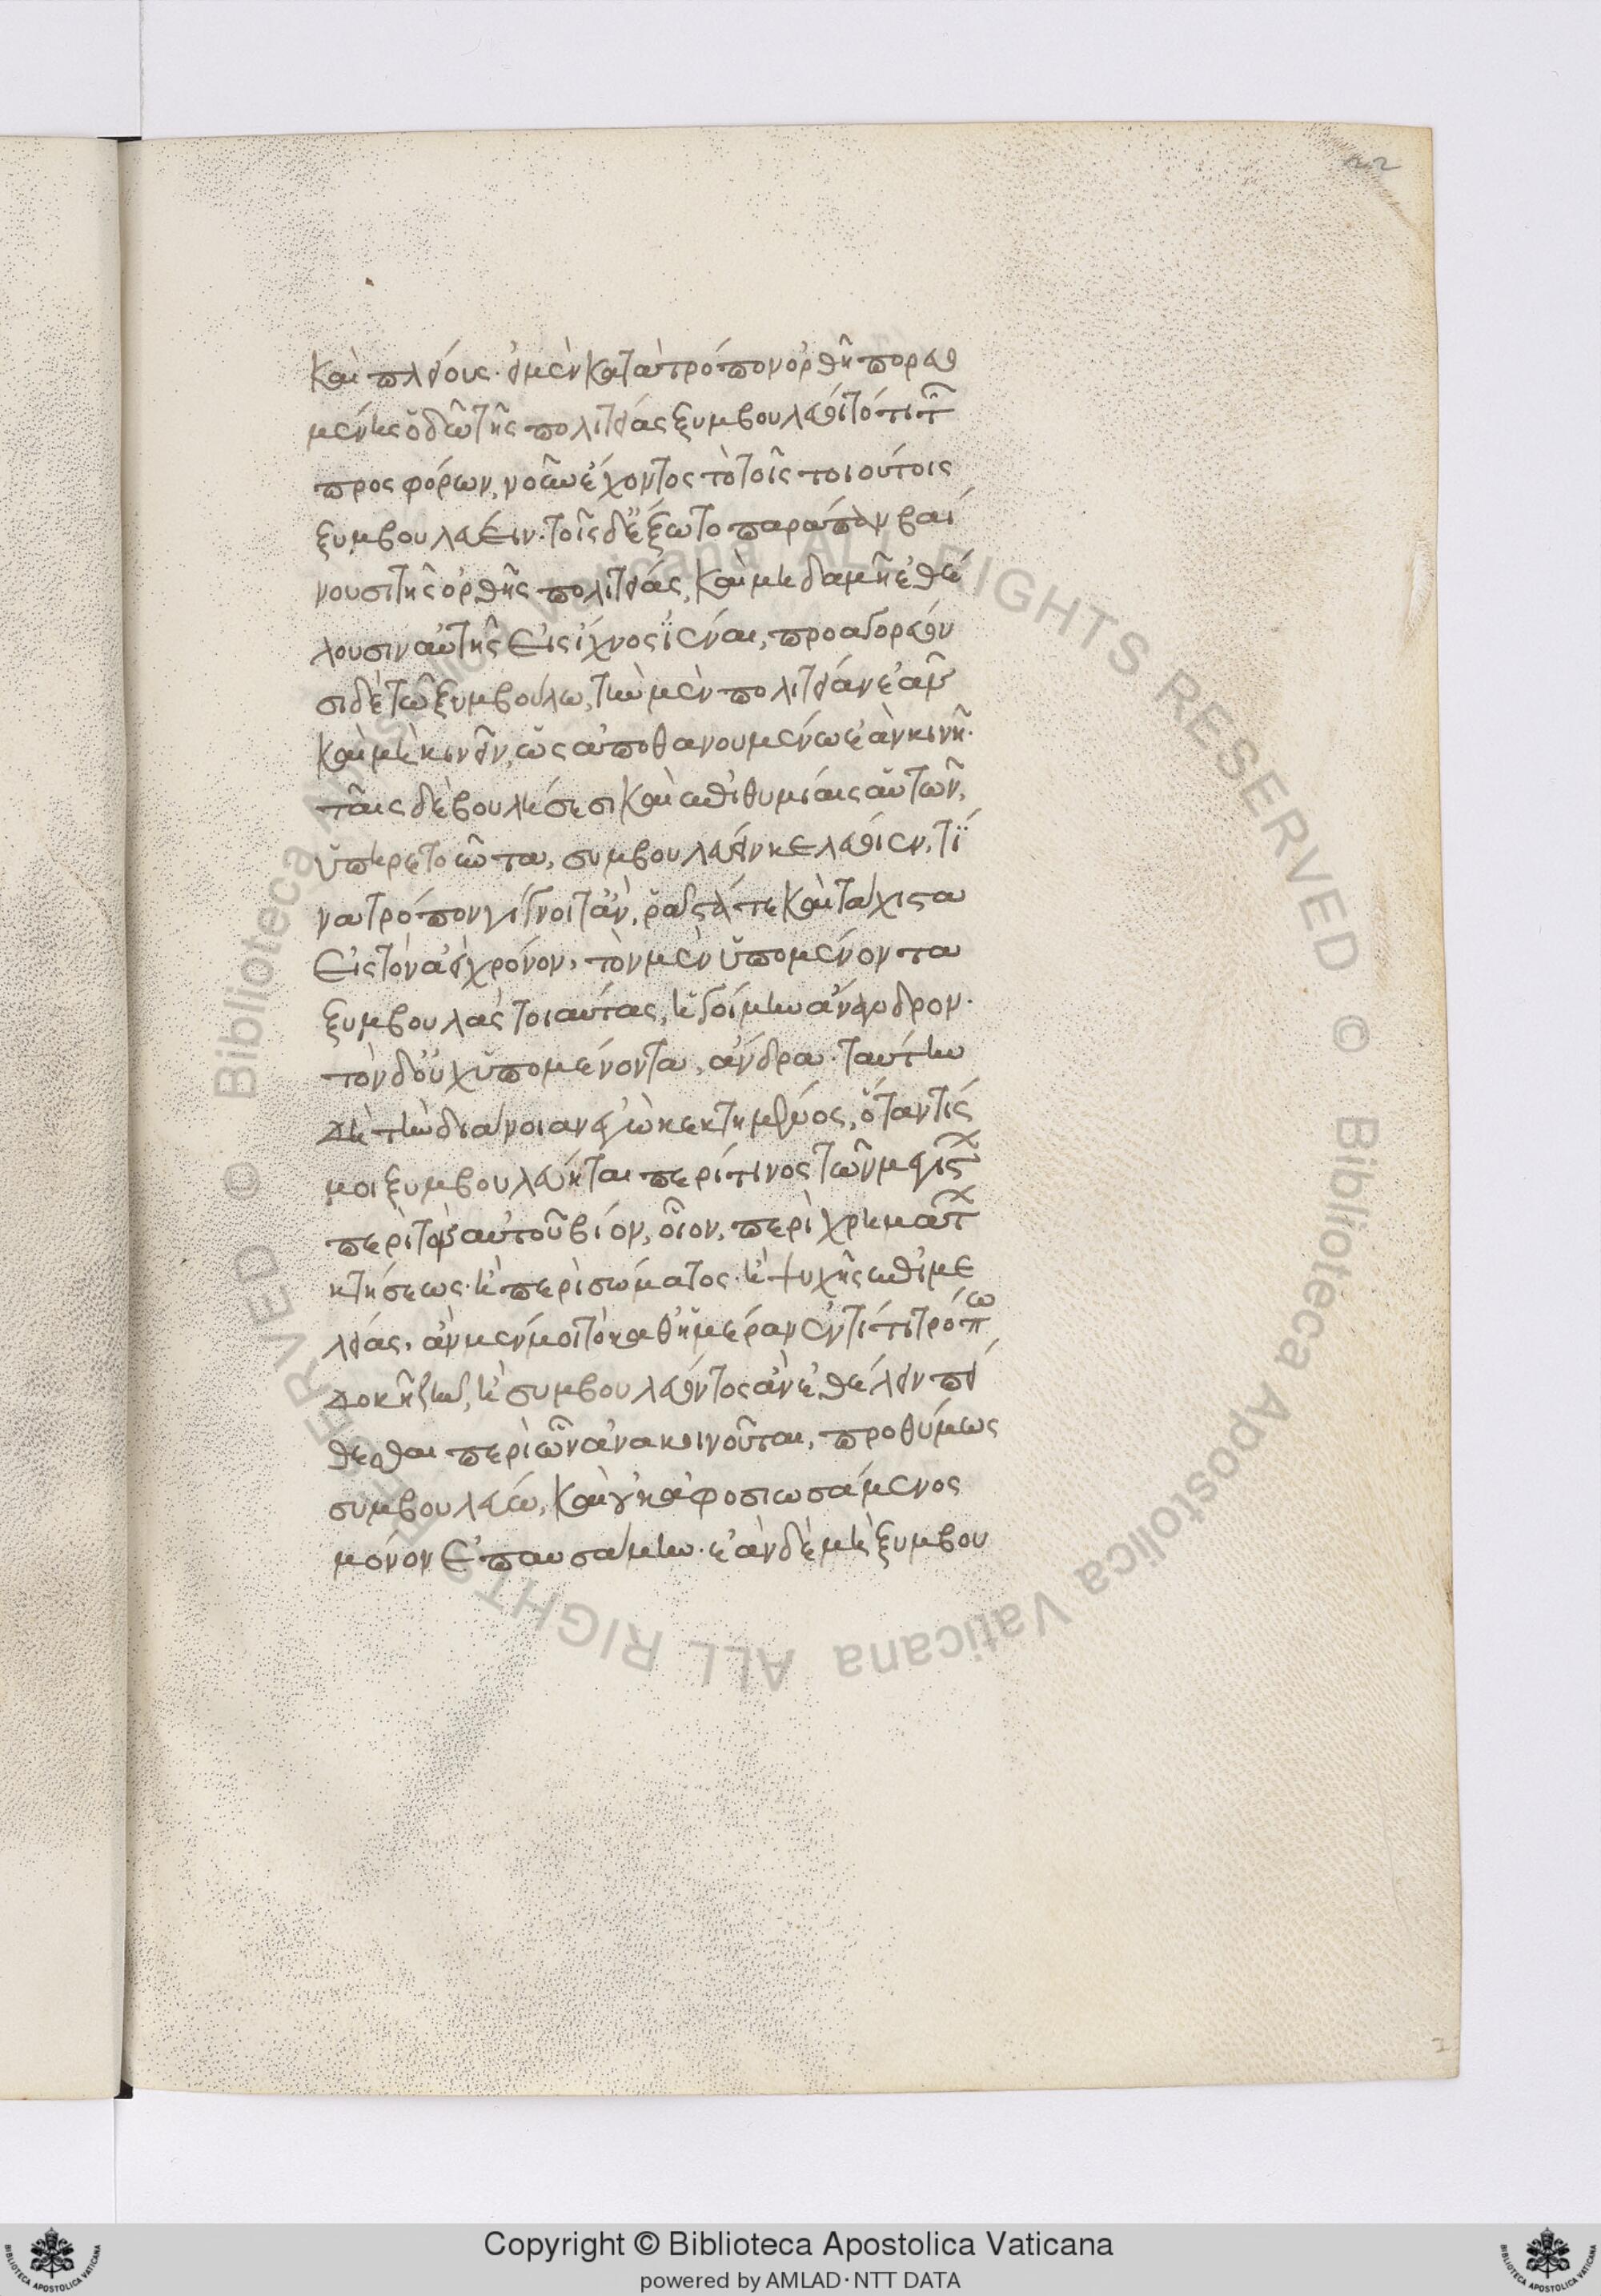 22
καὶ πλείους· εἰ μὲν κατὰ τρόπον ὀρθῇ πορευο
μένης ὁδῷ τῆς πολιτείας ξυμβουλεύοιτό τι τῶν
προσφόρων, νοῦν ἔχοντος τὸ τοῖς τοιούτοις
ξυμβουλεύειν· τοῖς δ' ἔξω τὸ παράπαν βαί
νουσι τῆς ὀρθῆς πολιτείας, καὶ μηδαμῇ ἐθέ
λουσιν αὐτῆς εἰς ἴχνος ἰέναι, προαγορεύου
σι δὲ τῷ ξυμβούλῳ, τὴν μὲν πολιτείαν ἐᾶν
καὶ μὴ κινεῖν, ὡς ἀποθανουμένῳ ἐὰν κινῇ·
ταῖς δὲ βουλήσεσι καὶ ἐπιθυμίαις αὐτῶν,
ὑπηρετοῦντα, συμβουλεύειν κελεύοιεν, τί
να τρόπον γίγνοιτ' ἂν, ῥᾷστά τε καὶ τάχιστα
εἰς τὸν ἀεὶ χρόνον, τὸν μὲν ὑπομένοντα
ξυμβουλὰς τοιαύτας, ἡγοίμην ἄνανδρον·
τὸν δ' οὐχ ὑπομένοντα, ἄνδρα· ταύτην
δὴ τὴν διάνοιαν ἐγὼ κεκτημένος, ὅταν τίς
μοι ξυμβουλεύηται περί τινος τῶν μεγίστων
περὶ τὸν αὑτοῦ βίον, οἷον, περὶ χρημάτων
κτήσεως· ἢ περὶ σώματος· ἢ ψυχῆς ἐπιμε
λείας, ἂν μέν μοι τὸ καθ' ἡμέραν ἔν τινι τρόπῳ
δοκῇ ζῆν, ἢ συμβουλεύοντος ἂν ἐθέλειν πεί
θεσθαι περὶ ὧν ἀνακοινοῦται, προθύμως
συμβουλεύω, καὶ οὐκ ἀφοσιωσάμενος
μόνον ἐπαυσάμην· ἐὰν δὲ μὴ ξυμβου
Copyright © Biblioteca Apostolica Vaticana
powered by AMLAD·NTT DATA